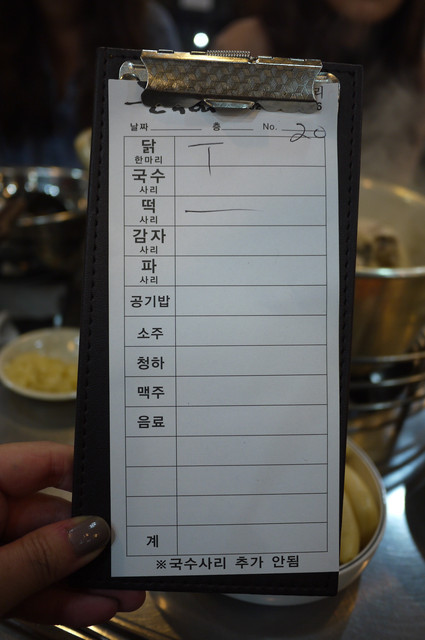 날짜 층 No. 20
닭
한마리
국수
사리
떡
사리
감자
사리
파
사리
공기밥
소주
청하
맥주
음료
계
※국수사리 추가 안됨